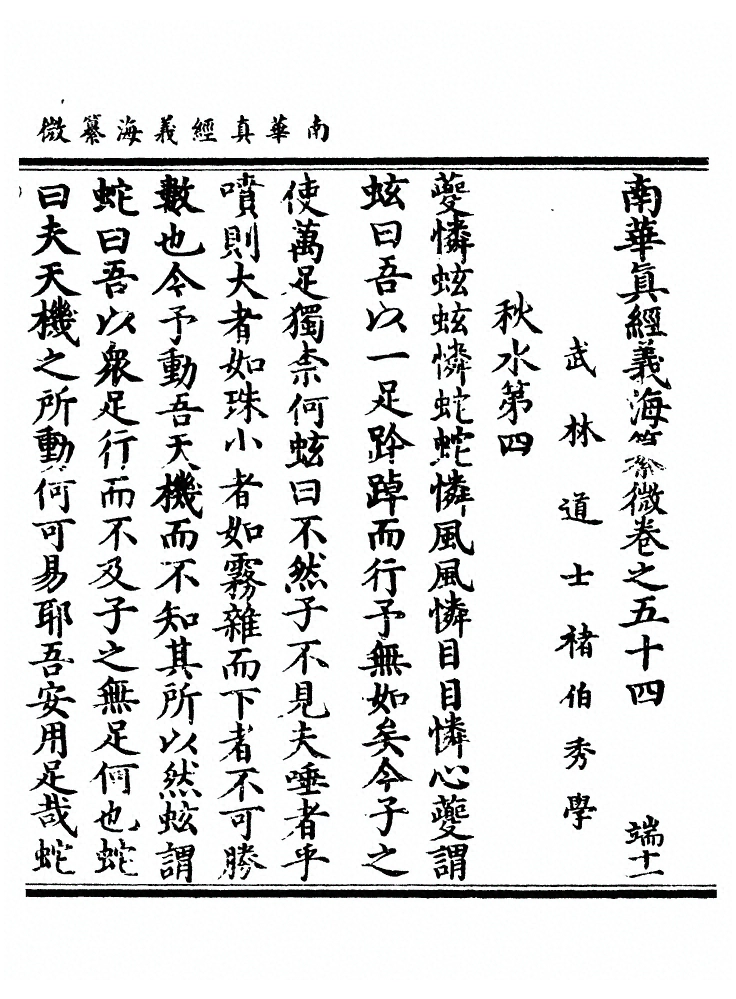 南華真經義海纂微
南華眞經義海纂微卷之五十四 端十一
武林道士褚伯秀學
秋水第四
夔憐蚿蚿憐蛇蛇憐風風憐目目憐心夔謂
蚿曰吾以一足趻踔而行予無如矣今子之
使萬足獨柰何蚿曰不然子不見夫唾者乎
噴則大者如珠小者如霧雜而下者不可勝
數也今予動吾天機而不知其所以然蚿謂
蛇曰吾以衆足行而不及子之無足何也蛇
曰夫天機之所動何可易耶吾安用足哉蛇